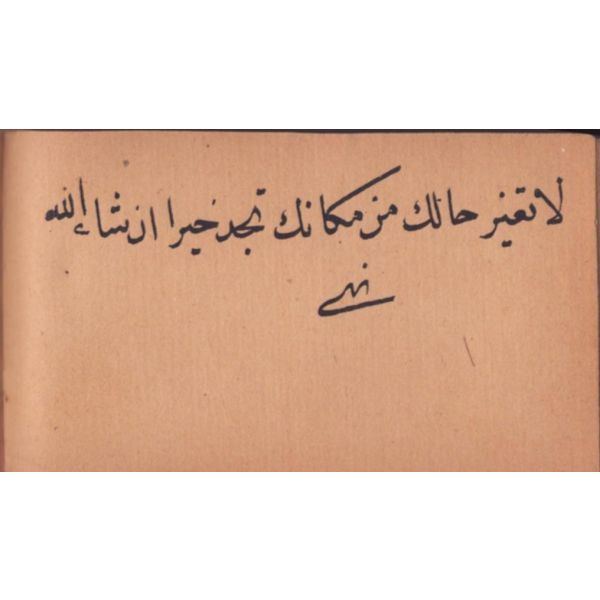 لا تغير حالك من مكانك تجد خيرا ان شاء الله
نهى